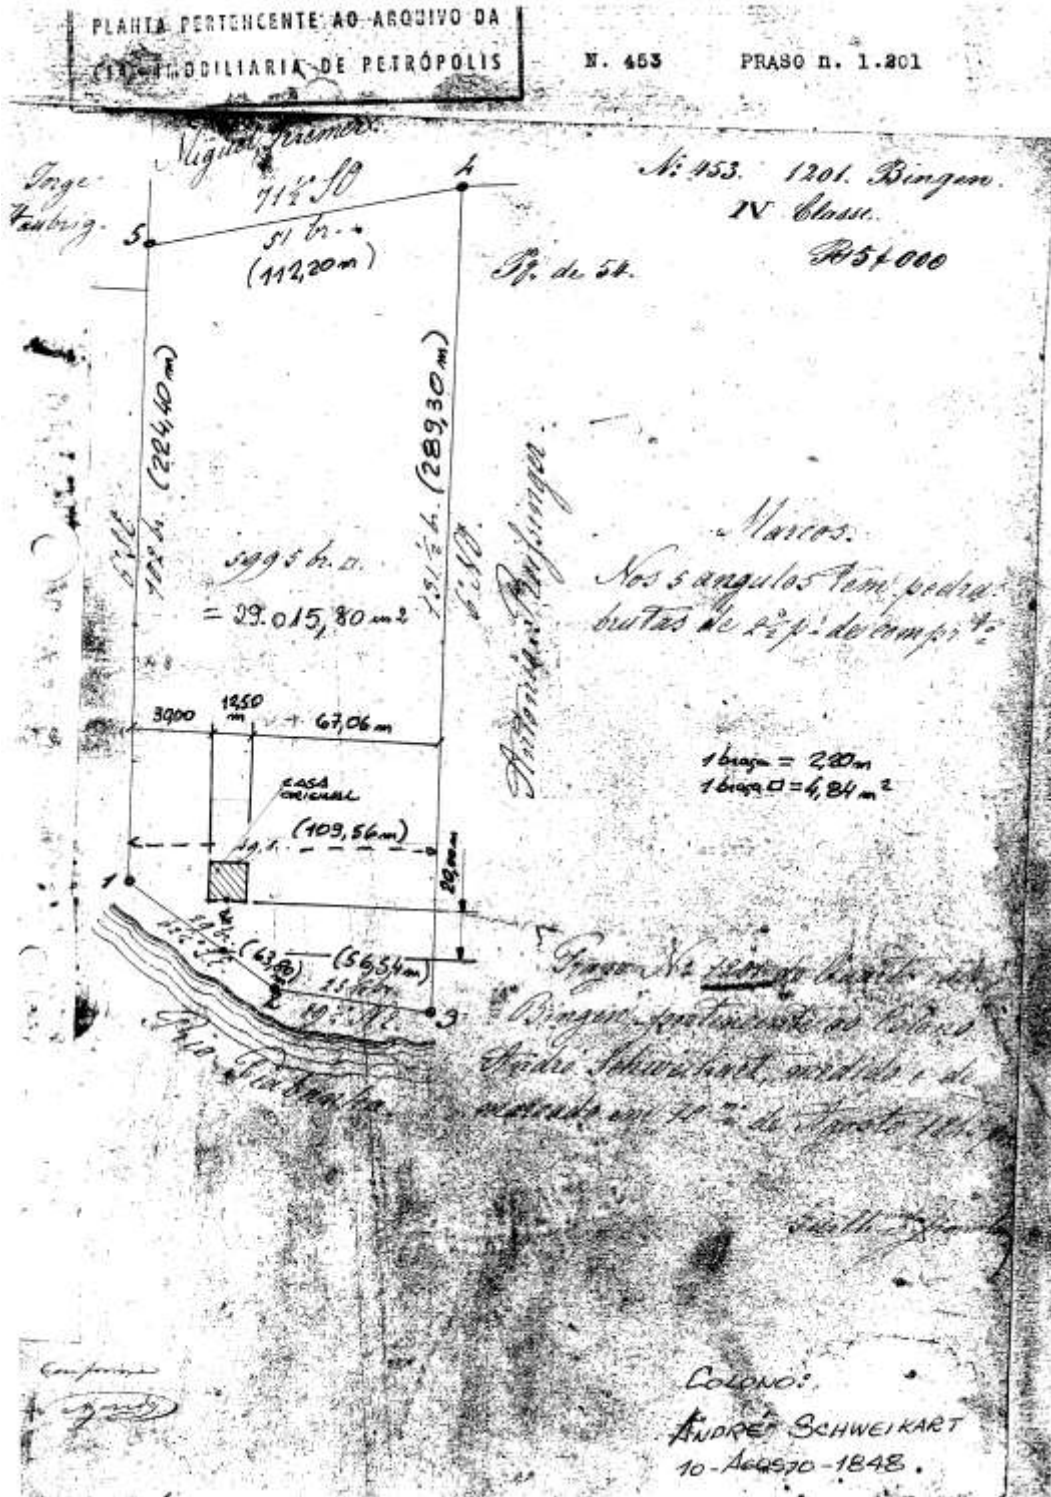 PLANTA PERTENCENTE AO ARQUIVO DA
IMOBILIARIA DE PETRÓPOLIS
N. 453 PRASO n. 1.201
Miguel
Jorge
71½° SO
4
Nº 453. 1201. Bingen.
IV Classe.
5
51 br.
(112,20m)
Pg. de 54.
5$000
102 br. (224,40m)
131½ br. (289,30m)
6° NO.
5995 br. □.
= 29.015,80 m2
Antonio
Marcos.
Nos 5 angulos tem pedra
brutas de 2½ p. de comprto
30,00
12,50
m
67,06 m
1 braça = 2,20m
1 braça □ = 4,84 m2
CASA
ORIGINAL
(109,56m)
20,00m
1
(63,80)
(56,54m)
2
3
Rio
Piabanha.
Prazo Nº 1201 do Quart
Bingen pertencente ao Colono
André Schweikart, medido e de
marcado em 10 de Agosto
Conforme
COLONO:
ANDRÉ SCHWEIKART
10-AGOSTO-1848.